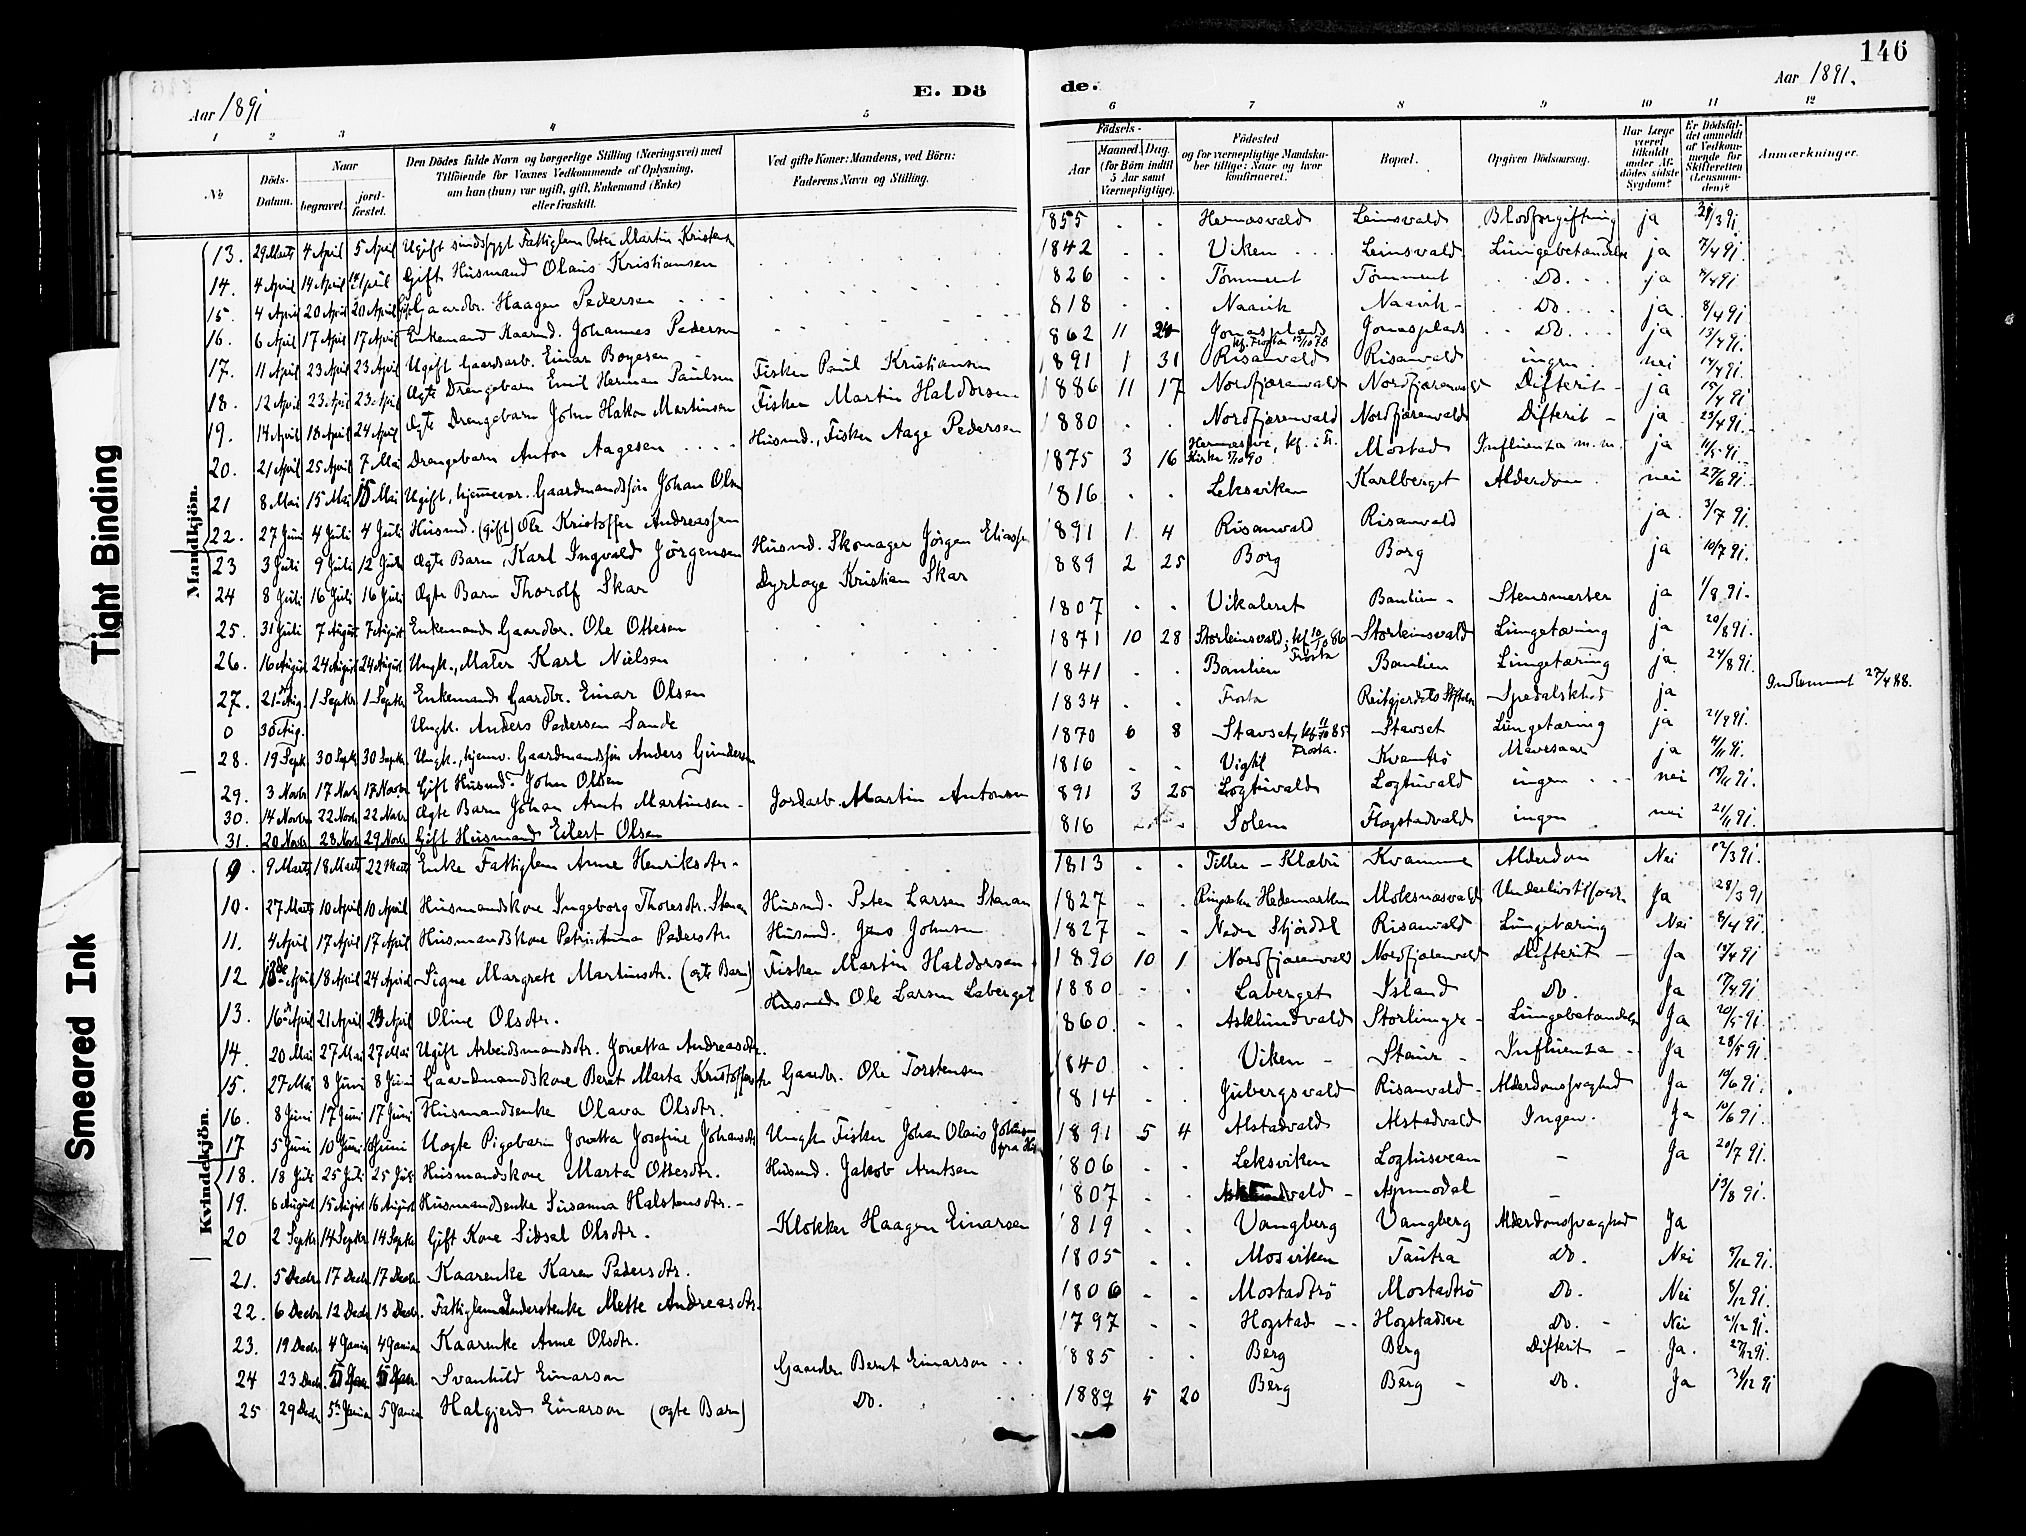 146
Aar 1891
E. Dö
de.
Aar 1891.
1 2 3 4 5 6 7 8 9 10 11 12
No
Döds-Datum.
Naar
begravet.
jord-fæstet.
Den Dödes fulde Navn og borgerlige Stilling (Næringsvei) med
Tilföiende for Voxnes Vedkommende af Oplysning,
om han (hun) var ugift, gift, Enkemand (Enke)
eller fraskilt.
Ved gifte Koner: Mandens, ved Börn:
Faderens Navn og Stilling.
Födsels-
Aar
Maaned. Dag.
(for Börn indtil
5 Aar samt
Værnepligtige).
Födested
og for værnepligtige Mandska-
ber tillige: Naar og hvor
konfirmeret.
Bopæl.
Opgiven Dödsaarsag.
Har Læge
været
tilkaldt
under Af-
dödes sidste
Sygdom?
Er Dödsfal-
det anmeldt
af Vedkom-
mende for
Skifteretten
(Lensman-
den)?
Anmærkninger.
Mandkjön.
13. 29 Marts 4 April 5 April Ugift sindssygt Fattiglem Peter Martin Kristensen 1855 Hermosvald Leinsvald Blodforgiftning ja
14. 4 April 14 April 14 April Gift Husmand Olaus Kristiansen 1842 Viken Leinsvald Lungebetændelse ja 7/4 91
15. 4 April 20 April 20 April Gaardbr. Haagen Pedersen 1826 Tømment Tømment Do. ja 7/4 91
16. 6 April 17 April 17 April Enkemand Kaarmd. Johannes Pedersen 1818 Naavik Naavik Do. ja 8/4 91
17. 11 April 23 April 23 April Ugift Gaardarb. Einar Boyesen 1862 11 24 Jonasplads kf. Frosta 13/10 78 Jonasplads Do. ja 13/4 91.
18. 12 April 23 April 23 April Ægte Drengebarn Emil Herman Paulsen Fisker Paul Kristiansen 1891 1 31 Risanvald Risanvald ingen nei 14/4 91.
19. 14 April 18 April 24 April Ægte Drengebarn John Hakon Martinsen Fisker Martin Haldorsen 1886 11 17 Nordfjærenvald Nordfjærenvald Difterit ja 15/4 91
20. 21 April 25 April 7 Mai Drengebarn Anton Aagesen Husmd., Fisker Aage Pedersen 1880 Nordfjærenvald Nordfjærenvald Difterit ja 23/4 91.
21 8 Mai 15 Mai 15 Mai Ugift, hjemmevær. Gaardmandssøn Johan Olsen 1875 3 16 Mostad Influenza m.m. ja 11/5 91.
22. 27 Juni 4 Juli 4 Juli Husmd. (gift) Ole Kristoffer Andreassen 1816 Leksviken Karlberget Alderdom nei 27/6 91.
23 3 Juli 9 Juli 12 Juli Ægte Barn, Karl Ingvald Jörgensen Husmd. Skomager Jörgen Eliassen 1891 1 4 Risanvald Risanvald ja 3/7 91.
24 8 Juli 16 Juli 16 Juli Ægte Barn Thorolf Skar Dyrlæge Kristian Skar 1889 2 25 Borg Borg ja 10/7 91.
25. 31 Juli 7 August 7 August Enkemand Gaardbr. Ole Ottesen 1807 Vikaleret Banlien Stensmerter ja 1/8 91.
26. 16 August 24 August 24 August Ungk., Maler Karl Nielsen 1871 10 28 Storleinsvald, kf. 10/10 86 Frosta Storleinsvald Lungetæring ja 20/8 91.
27. 21 Aug. 1 Septbr 1 Septbr Enkemand Gaardbr. Einar Olsen 1841 Banlien Banlien Lungetæring ja 24/8 91.
0 30 Aug. Ungk. Anders Pedersen Sande 1834 Frosta Reitgjerdets Stiftelse Spedalskhed ja Indlemmet 27/4 88.
28. 19 Septr 30 Septr 30 Septr Ungk., hjemv. Gaardmandssøn Anders Gundersen 1870 6 8 Stavset, kf. 11/10 85 Frosta. Stavset Lungetæring ja 21/9 91.
29. 3 Novbr 17 Novbr 17 Novbr Gift Husmd. John Olsen 1816 Vigtil Kvamtrö Mavesaar ja 4/11 91.
30. 14 Novbr 22 Novbr 22 Novbr Ægte Barn Johan Arnt Martinsen Jordarb. Martin Antonsen 1891 3 25 Logtuvald Logtuvald ingen nei 18/11 91.
31. 20 Novbr 28 Novbr 29 Novbr Gift Husmand Eilert Olsen 1816 Solem Flogstadvald ingen nei 21/11 91.
Kvindekjön.
9. 9 Marts 18 Marts 22 Marts Enke Fattiglem Anne Henriksdtr. 1813 Tiller - Klæbu Kvamme Alderdom Nei 12/3 91.
10. 27 Marts 10 April 10 April Husmandskone Ingeborg Thoresdtr. Stavan Husmd. Peter Larsen Stavan 1827 Ringsaker Hedemarken Moksnesvald Ja 28/3 91
11. 4 April 17 April 17 April Husmandskone Petrikanna Pedersdtr. Husmd. Jens Johnsen 1827 Nedre Stjørdal Risanvald Lungetæring Nei 8/4 91
12 13de April 18 April 24 April Signe Margrete Martinsdtr. (ægte Barn) Fisker Martin Haldorsen 1890 10 1 Nordfjærenvald Nordfjærenvald Difterit Ja 13/4 91
13. 16 April 21 April 24 April Oline Olsdtr. Husmd Ole Larsen Laberget 1880 Laberget Island Do. Ja 17/4 91.
14. 20 Mai 27 Mai 27 Mai Ugift Arbeidsmandsdtr. Jonetta Andreasdtr. 1860. Asklundvald Storlimyr Lungebetændelse Ja 20/5 91.
15. 27 Mai 8 Juni 8 Juni Gaardmandskone Beret Marta Kristoffersdtr. Gaardbr. Ole Torstensen 1840 Viken Staur Influenza Ja 28/5 91.
16. 8 Juni 17 Juni 17 Juni Husmandsenke Olava Olsdtr. 1814 Gubergsvald Risanvald Alderdomssvaghed Ja 10/6 91.
17 5 Juni 10 Juni 10 Juni Uægte Pigebarn Jonetta Josefine Johansdtr Ungk. Fisker Johan Olaus Johansen fra Hit 1891 5 4 Alstadvald Alstadvald Ingen. Ja 10/6 91.
18. 18 Juli 25 Juli 25 Juli Husmandskone Marta Ottesdtr. Husmd. Jakob Arntsen 1806 Leksviken Logtusvean Ja 20/7 91.
19. 6 August 15 August 16 August Husmandsenke Susanna Halstensdtr. 1807 Asklundvald Aspmodal 13/8 91.
20 2 Septbr 14 Septbr 14 Septbr Gift Kone Sidsel Olsdtr. Klokker Haagen Einarsen 1819 Vangberg Vangberg Alderdomssvaghed Ja
21. 5 Decbr 17 Decbr 17 Decbr Kaarenke Karen Pedersdtr. 1805 Mosviken Tautra Do. Nei 7/12 91.
22. 6 Decbr 12 Decbr 13 Decbr Mette Andreasdtr. 1806 Mostadtrö Mostadtrö Do. Nei 8/12 91.
23. 19 Decbr 4 Januar 4 Januar Kaarenke Anne Olsdtr. 1797 Hogstad Hogstadsve Do. Nei 21/12 91.
24 23 Decbr. 5 Januar 5 Januar Svanhild Einarson Gaardbr. Bernt Einarson 1885 Berg Berg Difterit Ja. 27/12 91.
25 29 Decbr 5 Januar 5 Januar Halgjerd Einarson (ægte Barn) Do. 1889 5 20 Berg Berg Do. Ja 31/12 91
Tight Binding
Smeared Ink